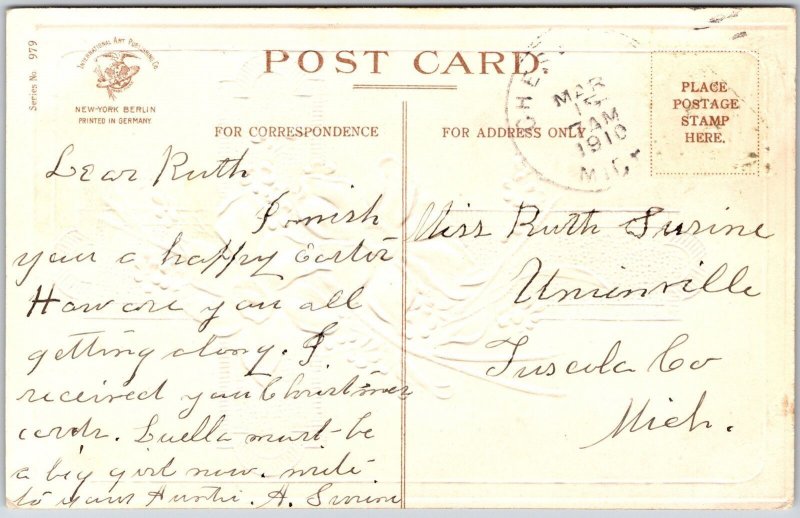 Series No 979
INTERNATIONAL ART PUBLISHING Co.
NEW-YORK BERLIN
PRINTED IN GERMANY
POST CARD
FOR CORRESPONDENCE
FOR ADDRESS ONLY
PLACE
POSTAGE
STAMP
HERE.
MAR
AM
1910
MICH
Dear Ruth
I wish
you a happy Easter
How are you all
getting along. I
received your Christmas
cards. Luella must be
a big girl now. write
to your Auntie. A. Surine
Miss Ruth Surine
Unionville
Tuscola Co
Mich.